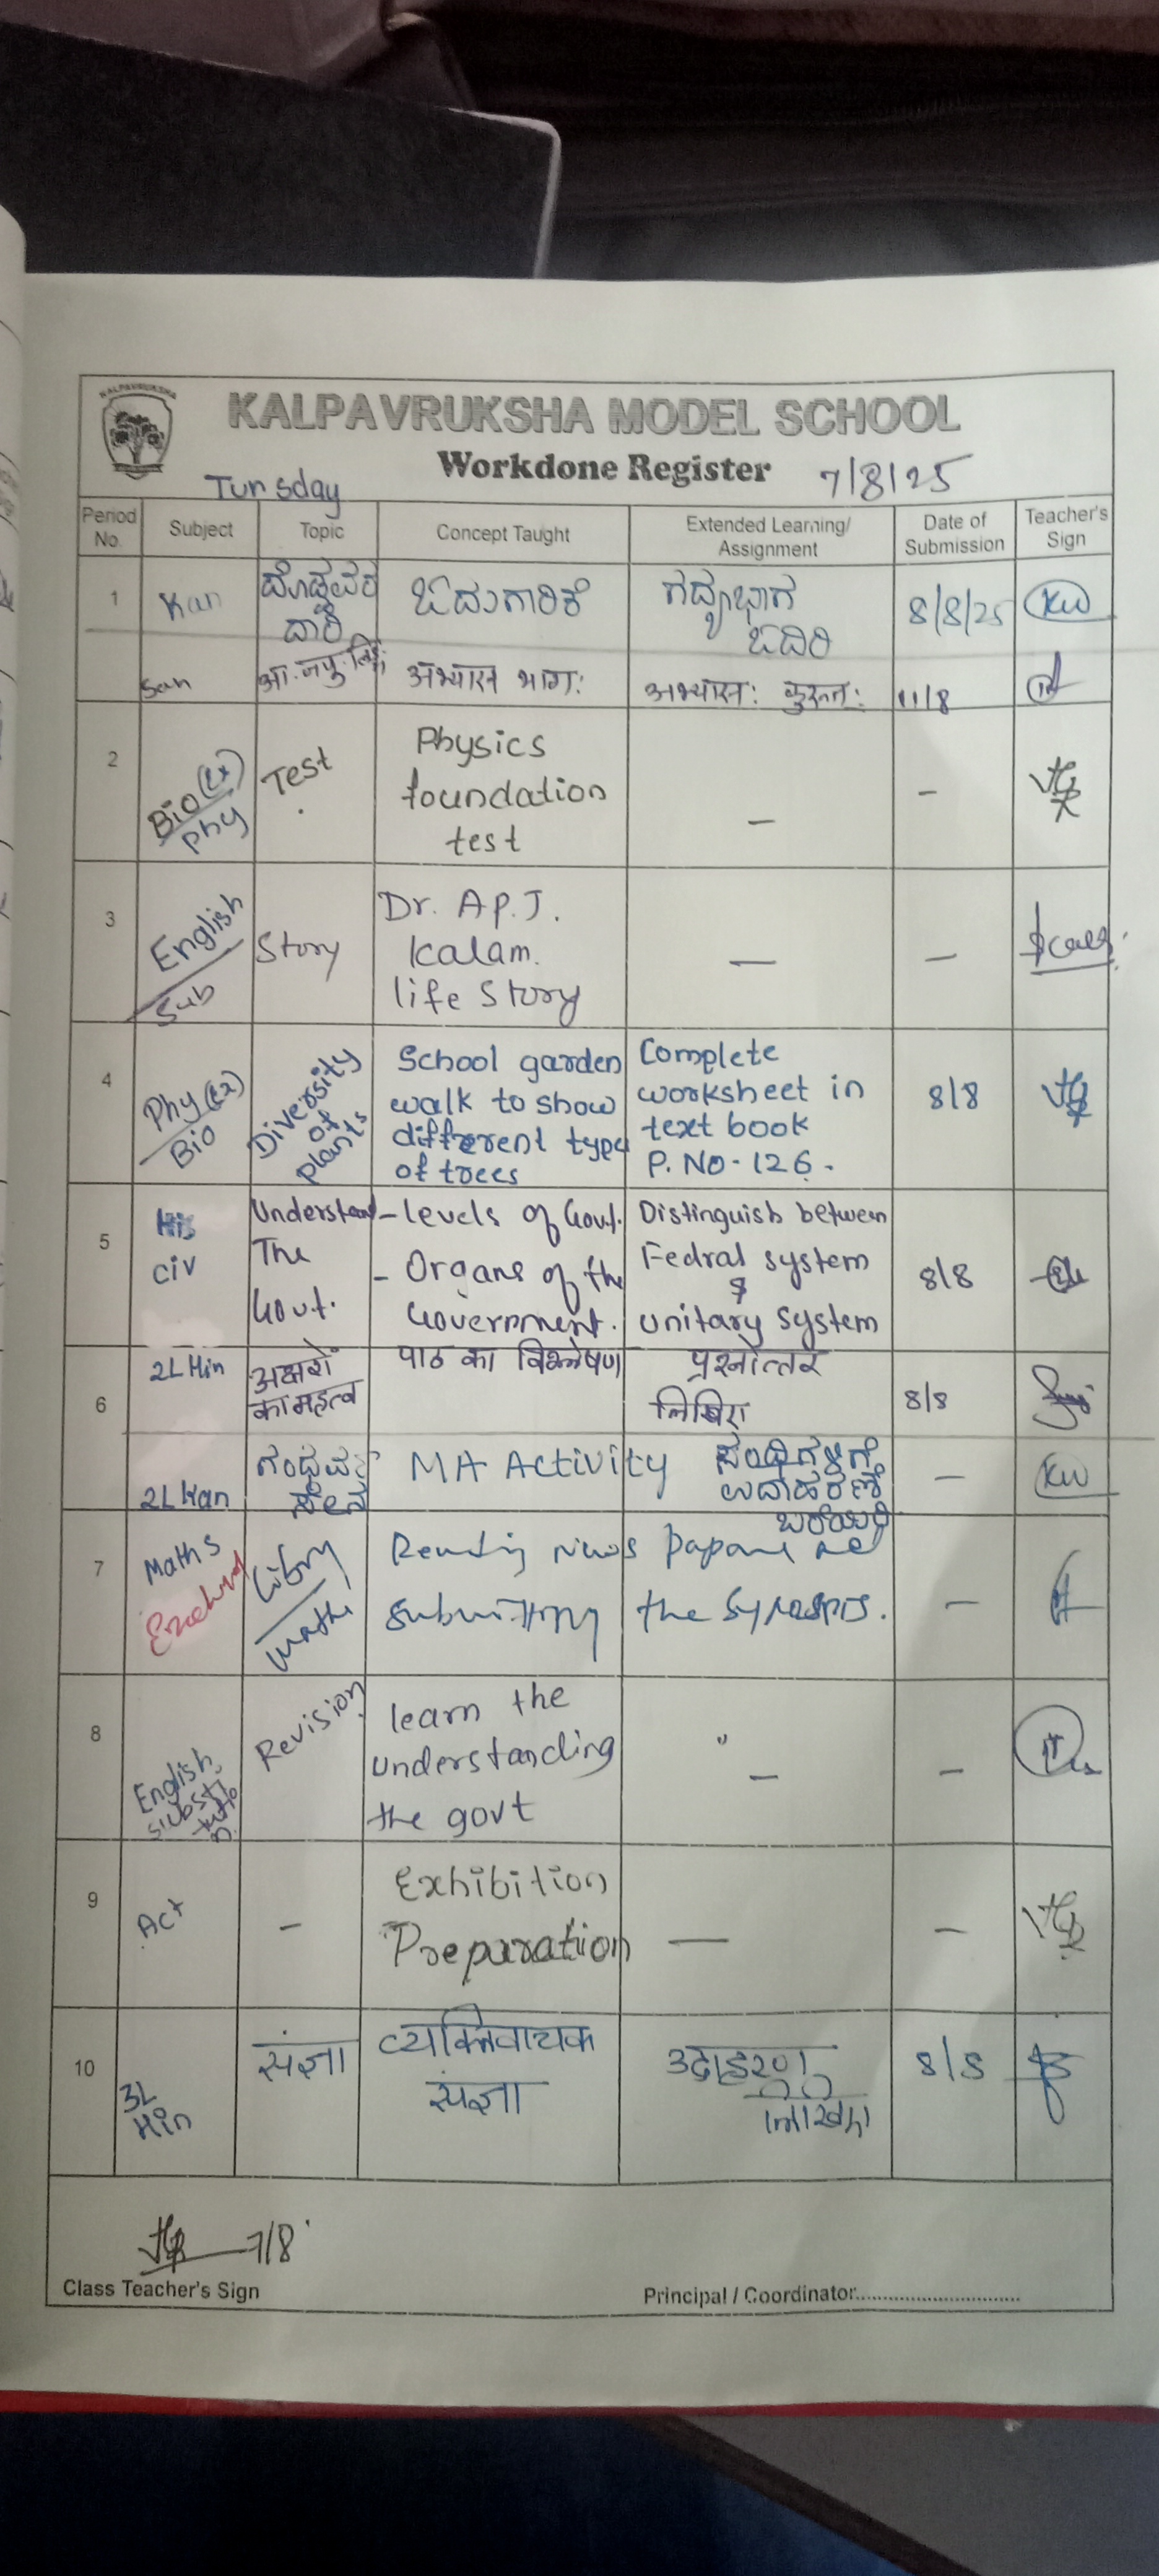 KALPAVRUKSHA
KALPAVRUKSHA MODEL SCHOOL
Workdone Register 7/8/25
Tursday
Period No. Subject Topic Concept Taught Extended Learning/ Assignment Date of Submission Teacher's Sign
1 Kan ದೊಡ್ಡವರ ದಾರಿ ಓದುಗಾರಿಕೆ ಗದ್ಯಭಾಗ ಓದಿರಿ 8/8/25
San अभ्यास भागः अभ्यासः कुरुतः 11/8
2 Bio (Ex) / Phy Test Physics foundation test — –
3 English / Sub Story Dr. A P. J. Kalam. life Story — —
4 Phy (Ex) / Bio Diversity of plants School garden walk to show different type of trees Complete worksheet in text book P. NO - 126. 8/8
5 His Civ Understand The Govt. – levels of Govt. – Organs of the Government. Distinguish between Fedral system & unitary system 8/8
6 2L Hin अक्षरों का महत्व पाठ का विश्लेषण प्रश्नोत्तर लिखिए 8/8
2L Kan MA Activity ಉದಾಹರಣೆ ಬರೆಯಿರಿ —
7 Maths / maths Reading news paper and submitting the synopsis. —
8 English substitution Revision learn the understanding the govt — —
9 Act – Exhibition Preparation — —
10 3L Hin संज्ञा व्यक्तिवाचक संज्ञा उदाहरण लिखिए 8/8
7/8
Class Teacher's Sign Principal / Coordinator..............................